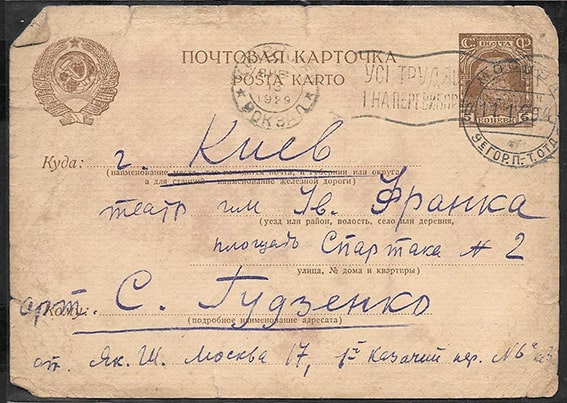 ПОЧТОВАЯ КАРТОЧКА
POŜTA KARTO
С ПОЧТА Ф
5 КОПЕЕК 5
1929
УСІ ТРУДЯ
І НА ПЕРЕВИБОРИ
9Е ГОР. П.-Т. ОТД.
Куда: г. Киев
(наименование места, где находится почта, и губернии или округа
а для станций наименование железной дороги)
театр им Ів. Франка
(уезд или район, волость, село или деревня,
площадь Спартака № 2
улица, № дома и квартиры)
арт. С. Гудзенко
Кому:
(подробное наименование адресата)
от. Як. Ш. Москва 17, 1й Казачий пер. № 6